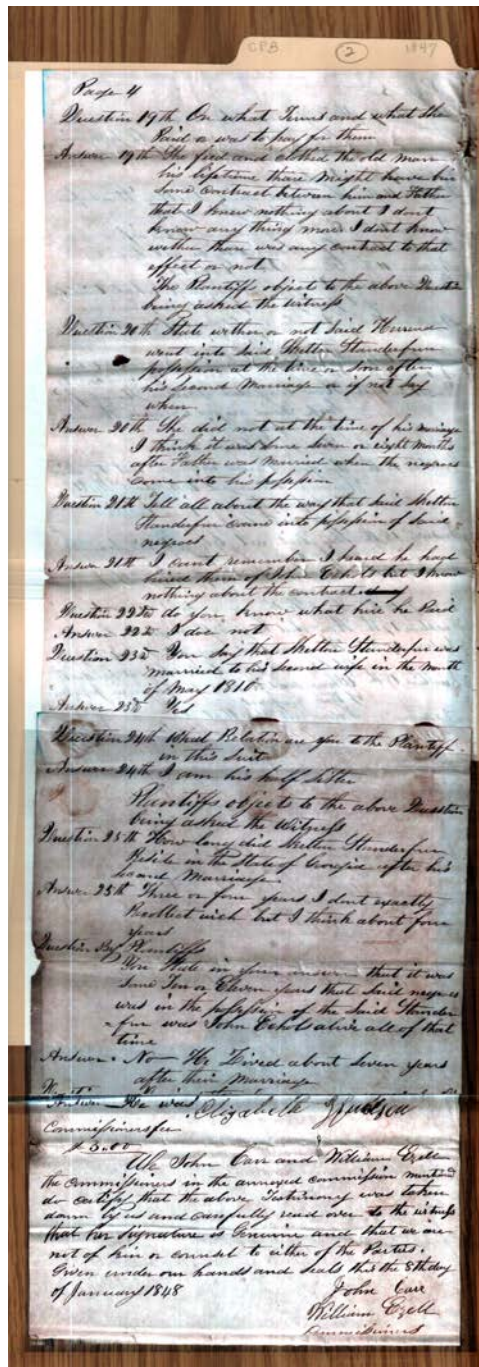 CPB 2 1847
Page 4
Question 19th On what Terms and what she
Paid or was to pay for them
Answer 19th She feed and clothed the old man
his lifetime thare might have bin
some contract between him and Father
that I knew nothing about I dont
know any thing more I dont know
wether thare was any contract to that
effect or not
The Plantiffs object to the above Question
being asked the witness
Question 20th State wether or not said
went into said Skelton Standefurs
possession at the time or soon after
his second Marriage or if not say
when
Answer 20th She did not at the time of his marriage
I think it was some seven or eight Months
after Father was married when the negroes
come into his possession
Question 21st Tell all about the way that said Skelton
Standefur came into possession of said
negroes
Answer 21st I cant remember I heard he had
hired them of John Echols but I know
nothing about the contract
Question 22nd do you know what hire he Paid
Answer 22nd I doe not
Question 23d You say that Skelton Standefur was
married to his second wife in the month
of May 1810
Answer 23d Yes
Question 24th What Relation are you to the Plantiff
in this suit
Answer 24th I am his half sister
Plantiffs objects to the above Question
being asked the Witness
Question 25th How long did Skelton Standefur
Reside in the State of Georgia after his
second Marriage
Answer 25th Three or four years I dont exactly
Recollect wich but I think about four
years
Question By Plantiffs
You State in your answer that it was
some Ten or Eleven years that said negroes
was in the possession of the said Stander
fur was John Echols alive all of that
time
Answer No He Lived about seven years
after their Marriage
Answer He was
Elizabeth Judson
Commissioners fee
$3.00
We John Carr and William Ezell
the commissioners in the annexed commission
do certify that the above Testimony was taken
down by us and carefully read over to the witness
that her signature is Genuine and that we are
not of kin or counsel to either of the Parties,
Given under our hands and seals this the 8th day
of January 1848
John Carr
William Ezell
Commissioners